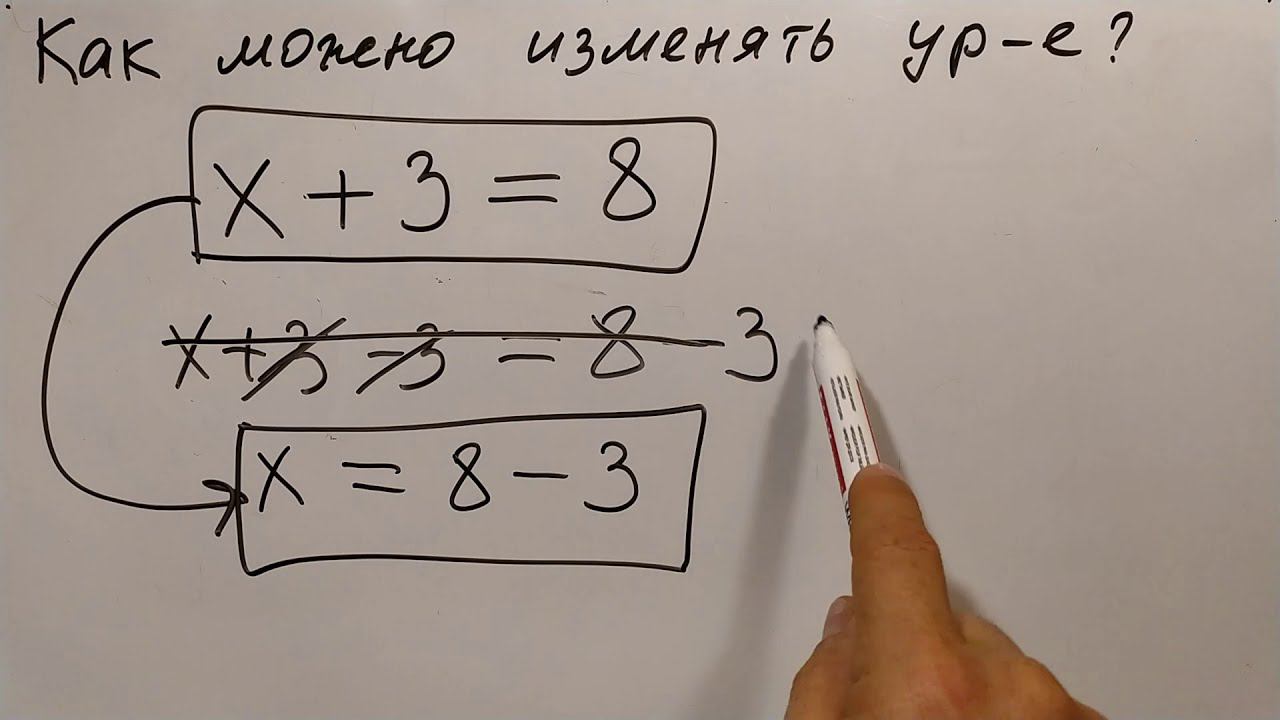 Как можно изменять ур-е?
x + 3 = 8
x + 3 - 3 = 8 - 3
x = 8 - 3